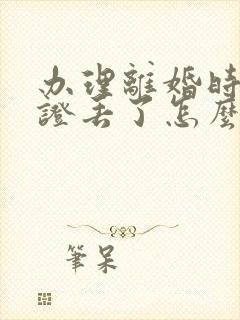 办理離婚時
證丢了怎麽
筆呆